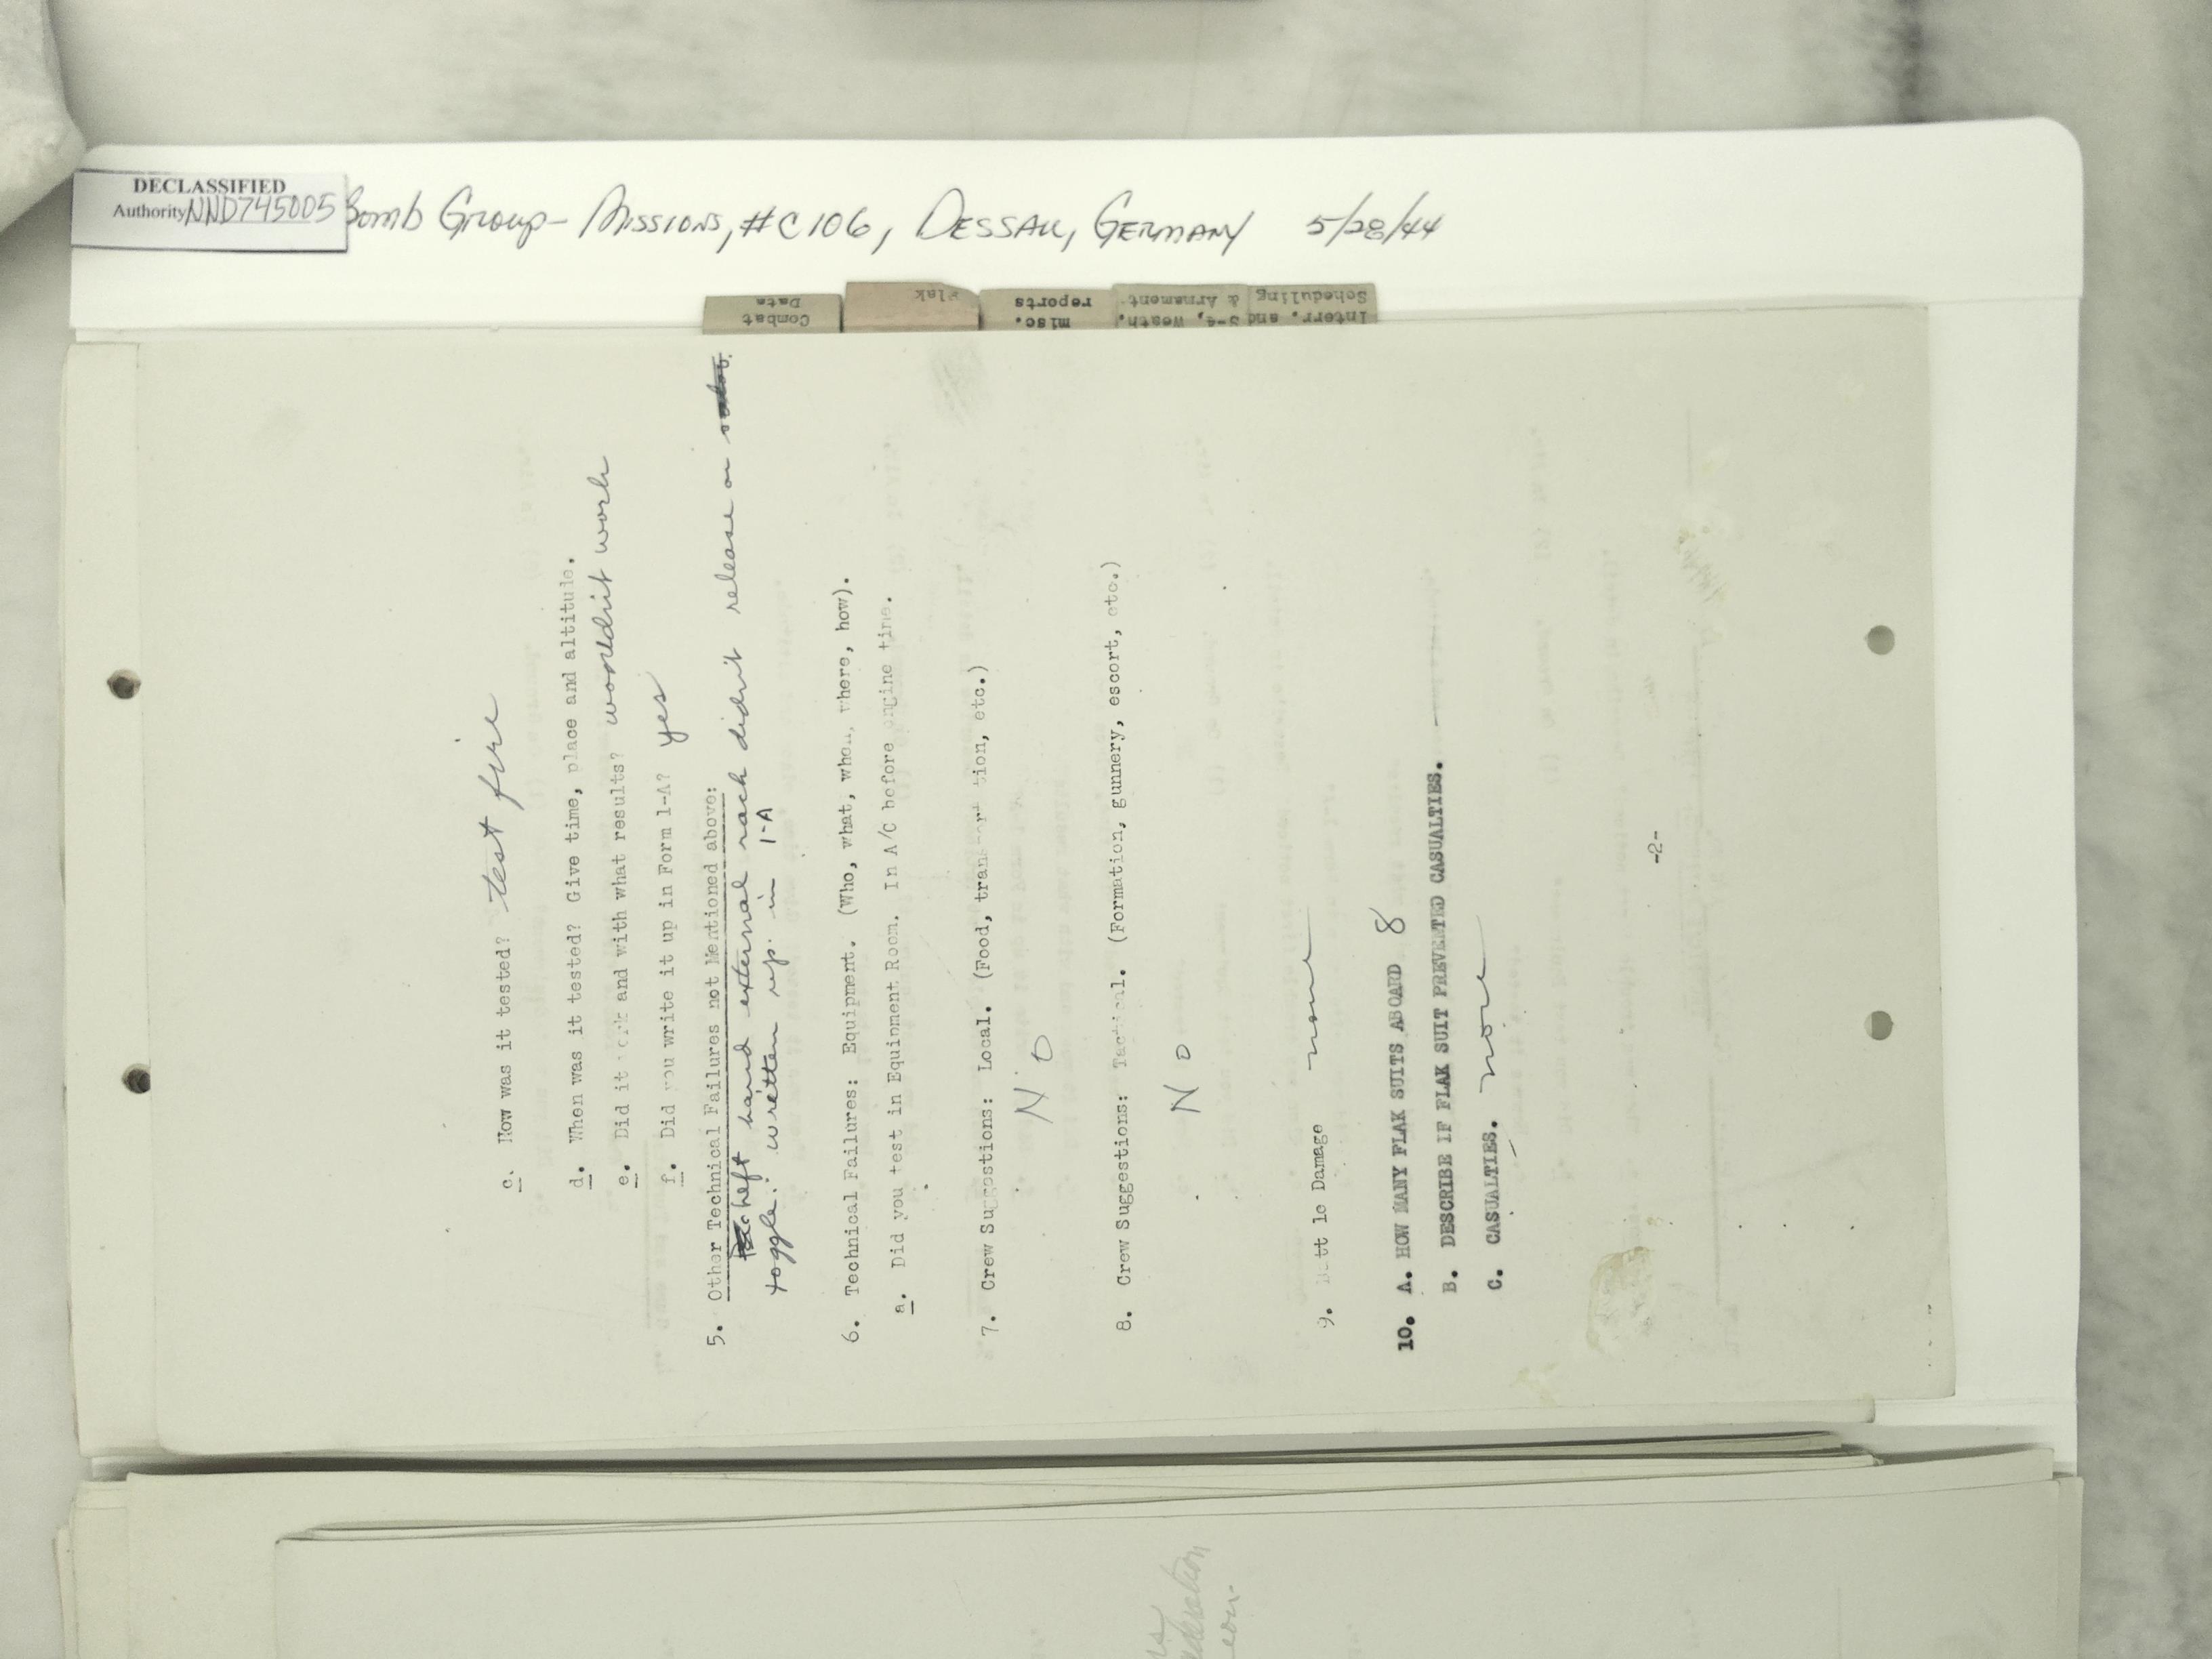 DECLASSIFIED
Authority NND745005
Bomb Group- Missions, #C106, DESSAU, GERMANY 5/28/44
Combat
Data
Flak
misc.
reports
S-4, Weath.
& Armament
Interr. and
Scheduling
c. How was it tested? test fire
d. When was it tested? Give time, place and altitude.
e. Did it work and with what results? wouldn't work
f. Did you write it up in Form 1-A? yes
5. Other Technical Failures not Mentioned above:
left hand external rack didn't release on
toggle. written up in 1-A
6. Technical Failures: Equipment. (Who, what, when, where, how).
a. Did you test in Equipment Room. In A/C before engine time.
7. Crew Suggestions: Local. (Food, transportation, etc.)
No
8. Crew Suggestions: Tactical. (Formation, gunnery, escort, etc.)
No
9. Battle Damage none
10. A. HOW MANY FLAK SUITS ABOARD 8
B. DESCRIBE IF FLAK SUIT PREVENTED CASUALTIES.
C. CASUALTIES. none
-2-